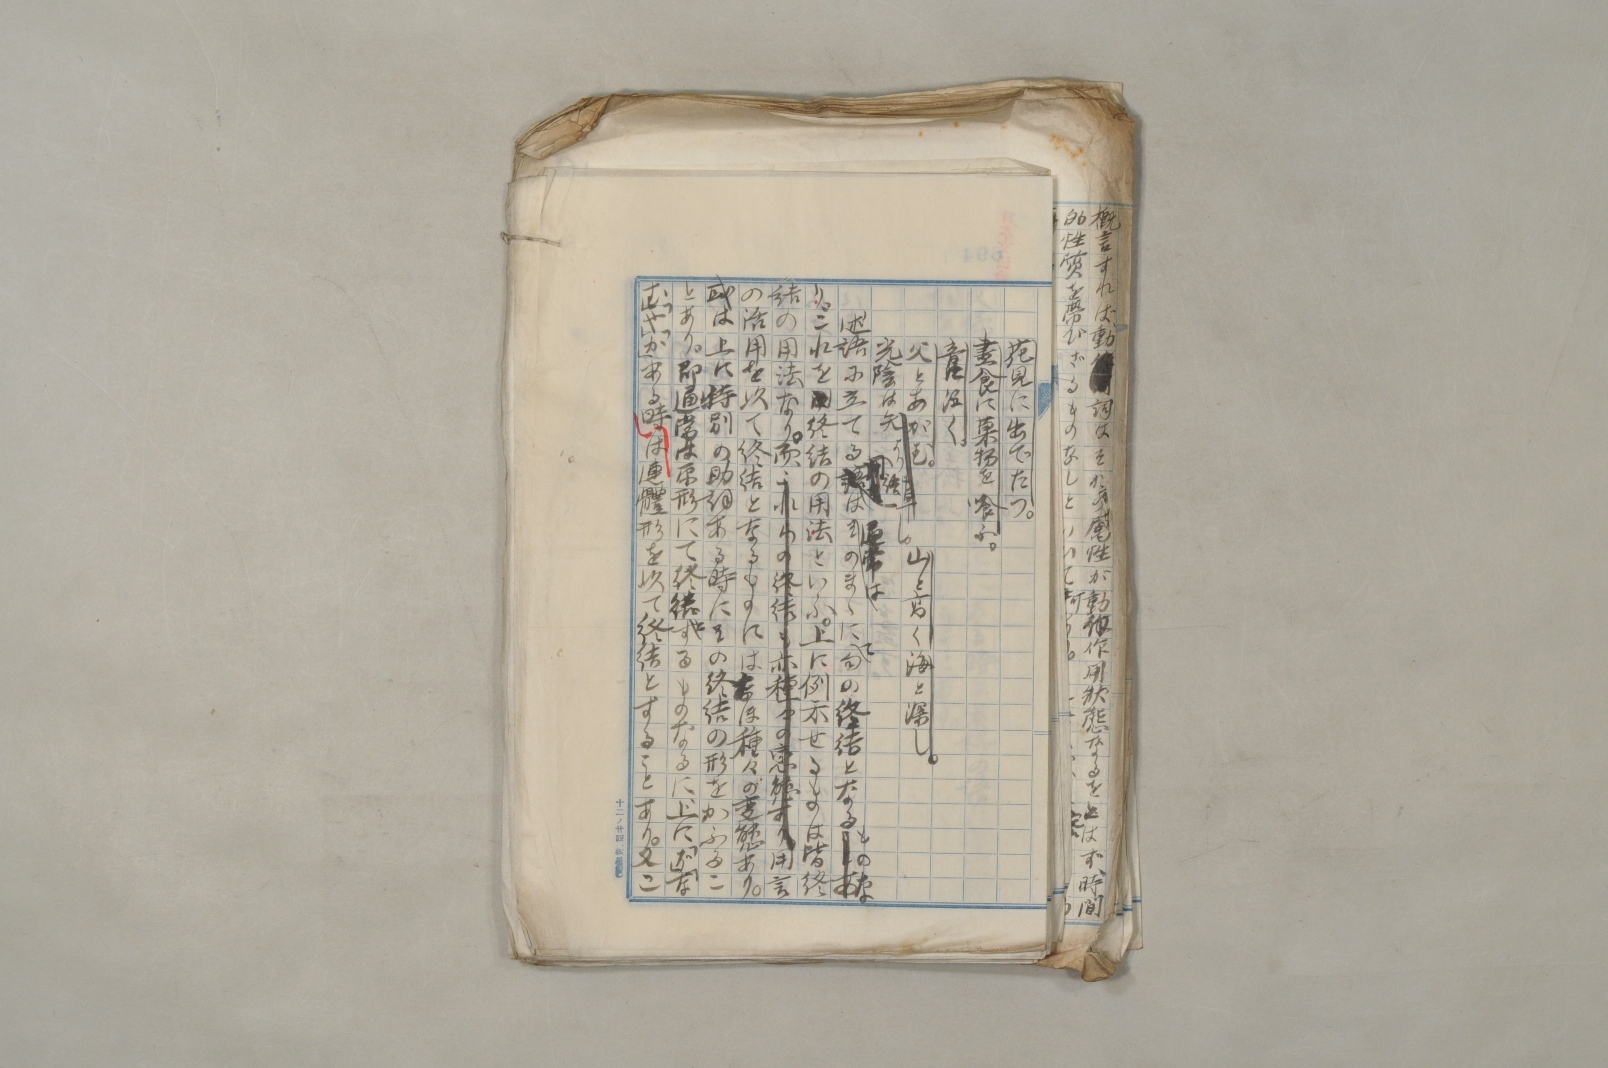 概言すれば動詞はその属性が動作作用状態なるをとはず、時間
的性質を帯びざるものなしといひて可なり。
花見に出でたつ。
晝食に菓物を食ふ。
音に泣く。
父とあがむ。山と高く海と深し。
光陰は矢より早し。
述語に立てる用語は通常はそのまゝにて句の終結となるものな
り。これを終結の用法といふ。上に例示せるものは皆終
結の用法なり。而これらの終結も亦種々の変態あり用言
の活用を以て終結となるものにはなほ種々の変態あり。
或は上に特別の助詞ある時にその終結の形をかふるこ
とあり。即通常は原形にて終結するものなるに、上に「ぞ」「な
む」「や」「か」ある時は連體形を以て終結とすることあり。又こ
十二ノ廿四